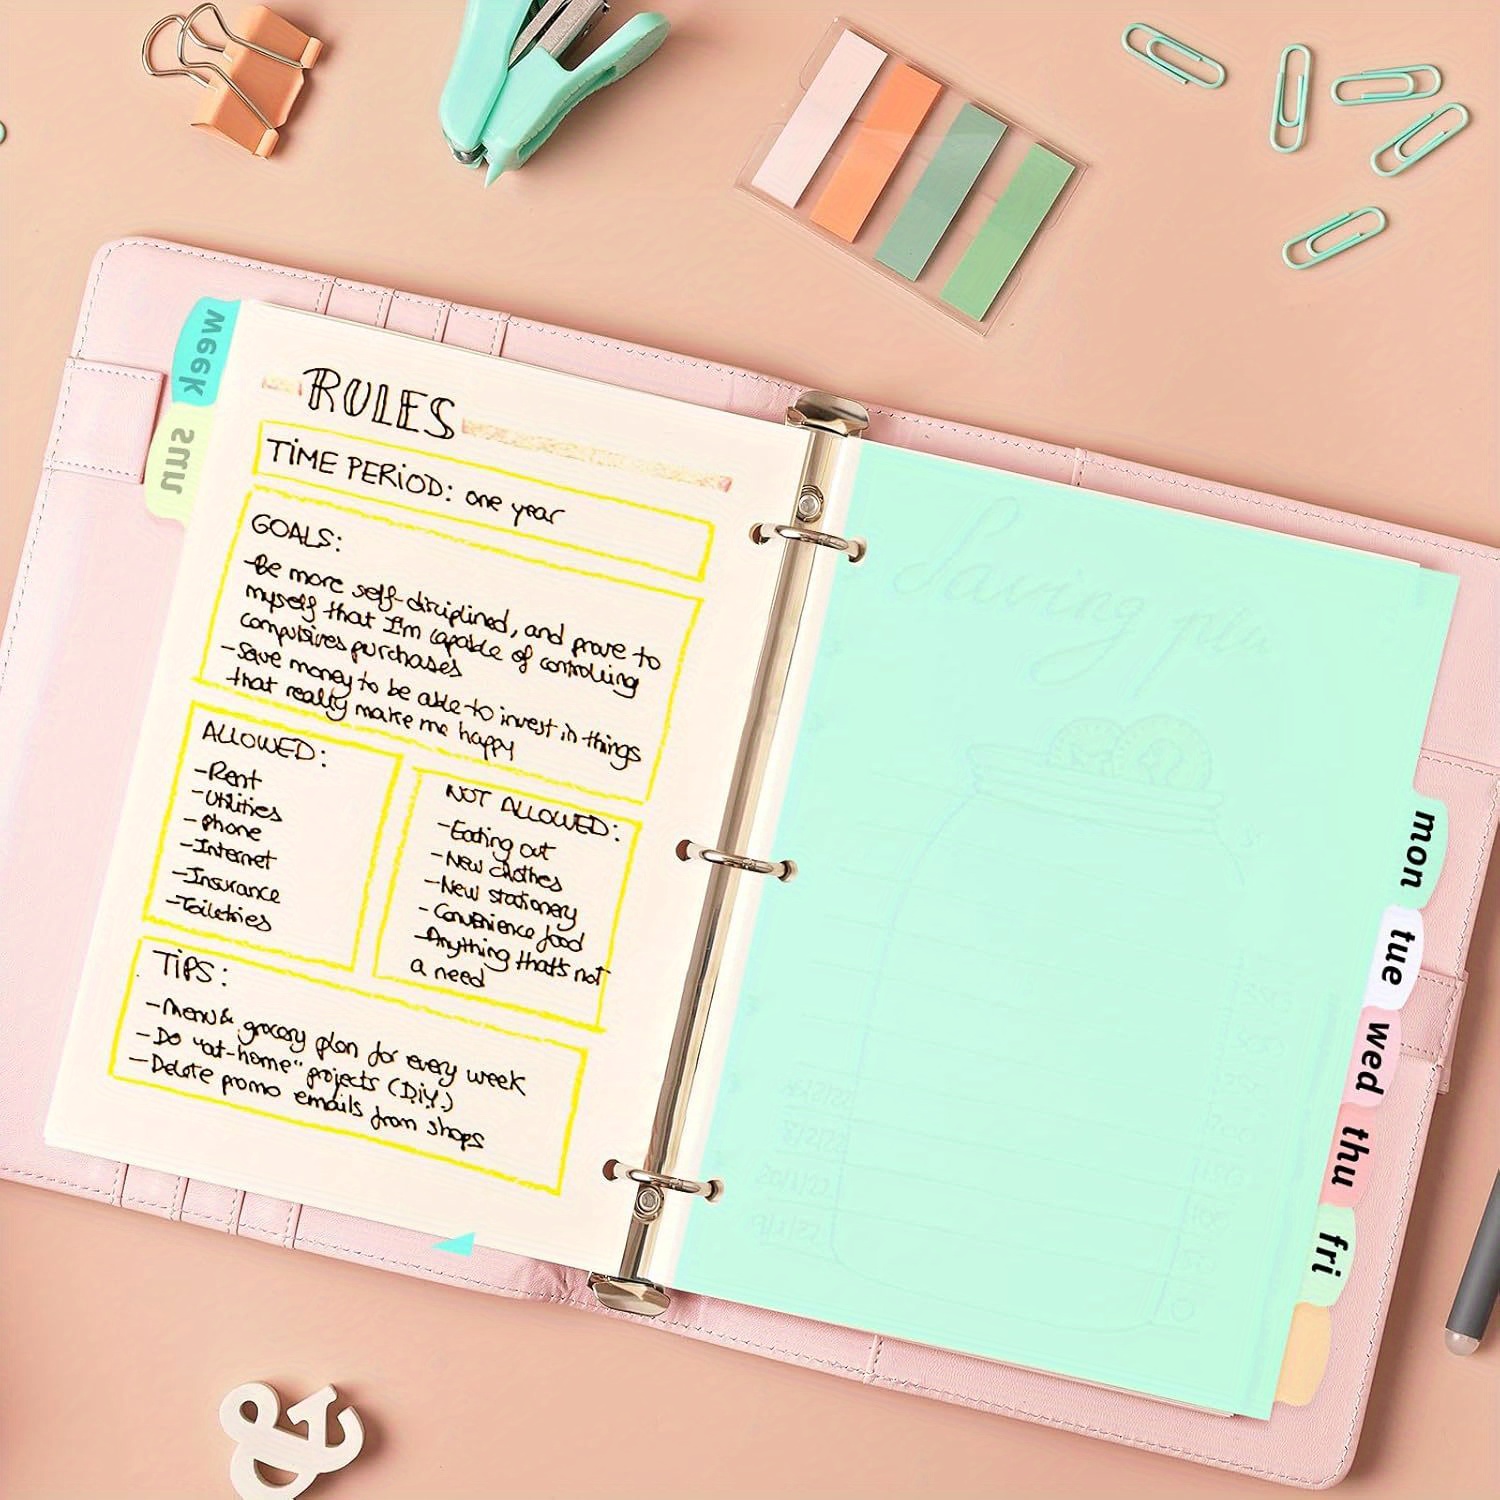 week
sun
RULES
TIME PERIOD: one year
GOALS:
-Be more self-disciplined, and prove to
myself that I'm capable of controlling
compulsives purchases
-Save money to be able to invest in things
that really make me happy
ALLOWED:
-Rent
-Utilities
-Phone
-Internet
-Insurance
-Toiletries
NOT ALLOWED:
-Eating out
-New clothes
-New stationery
-Convenience food
-Anything that's not
a need
TIPS:
-Menu & grocery plan for every week
-Do "at-home" projects (D.i.Y.)
-Delete promo emails from shops
Saving
mon
tue
wed
thu
fri
&